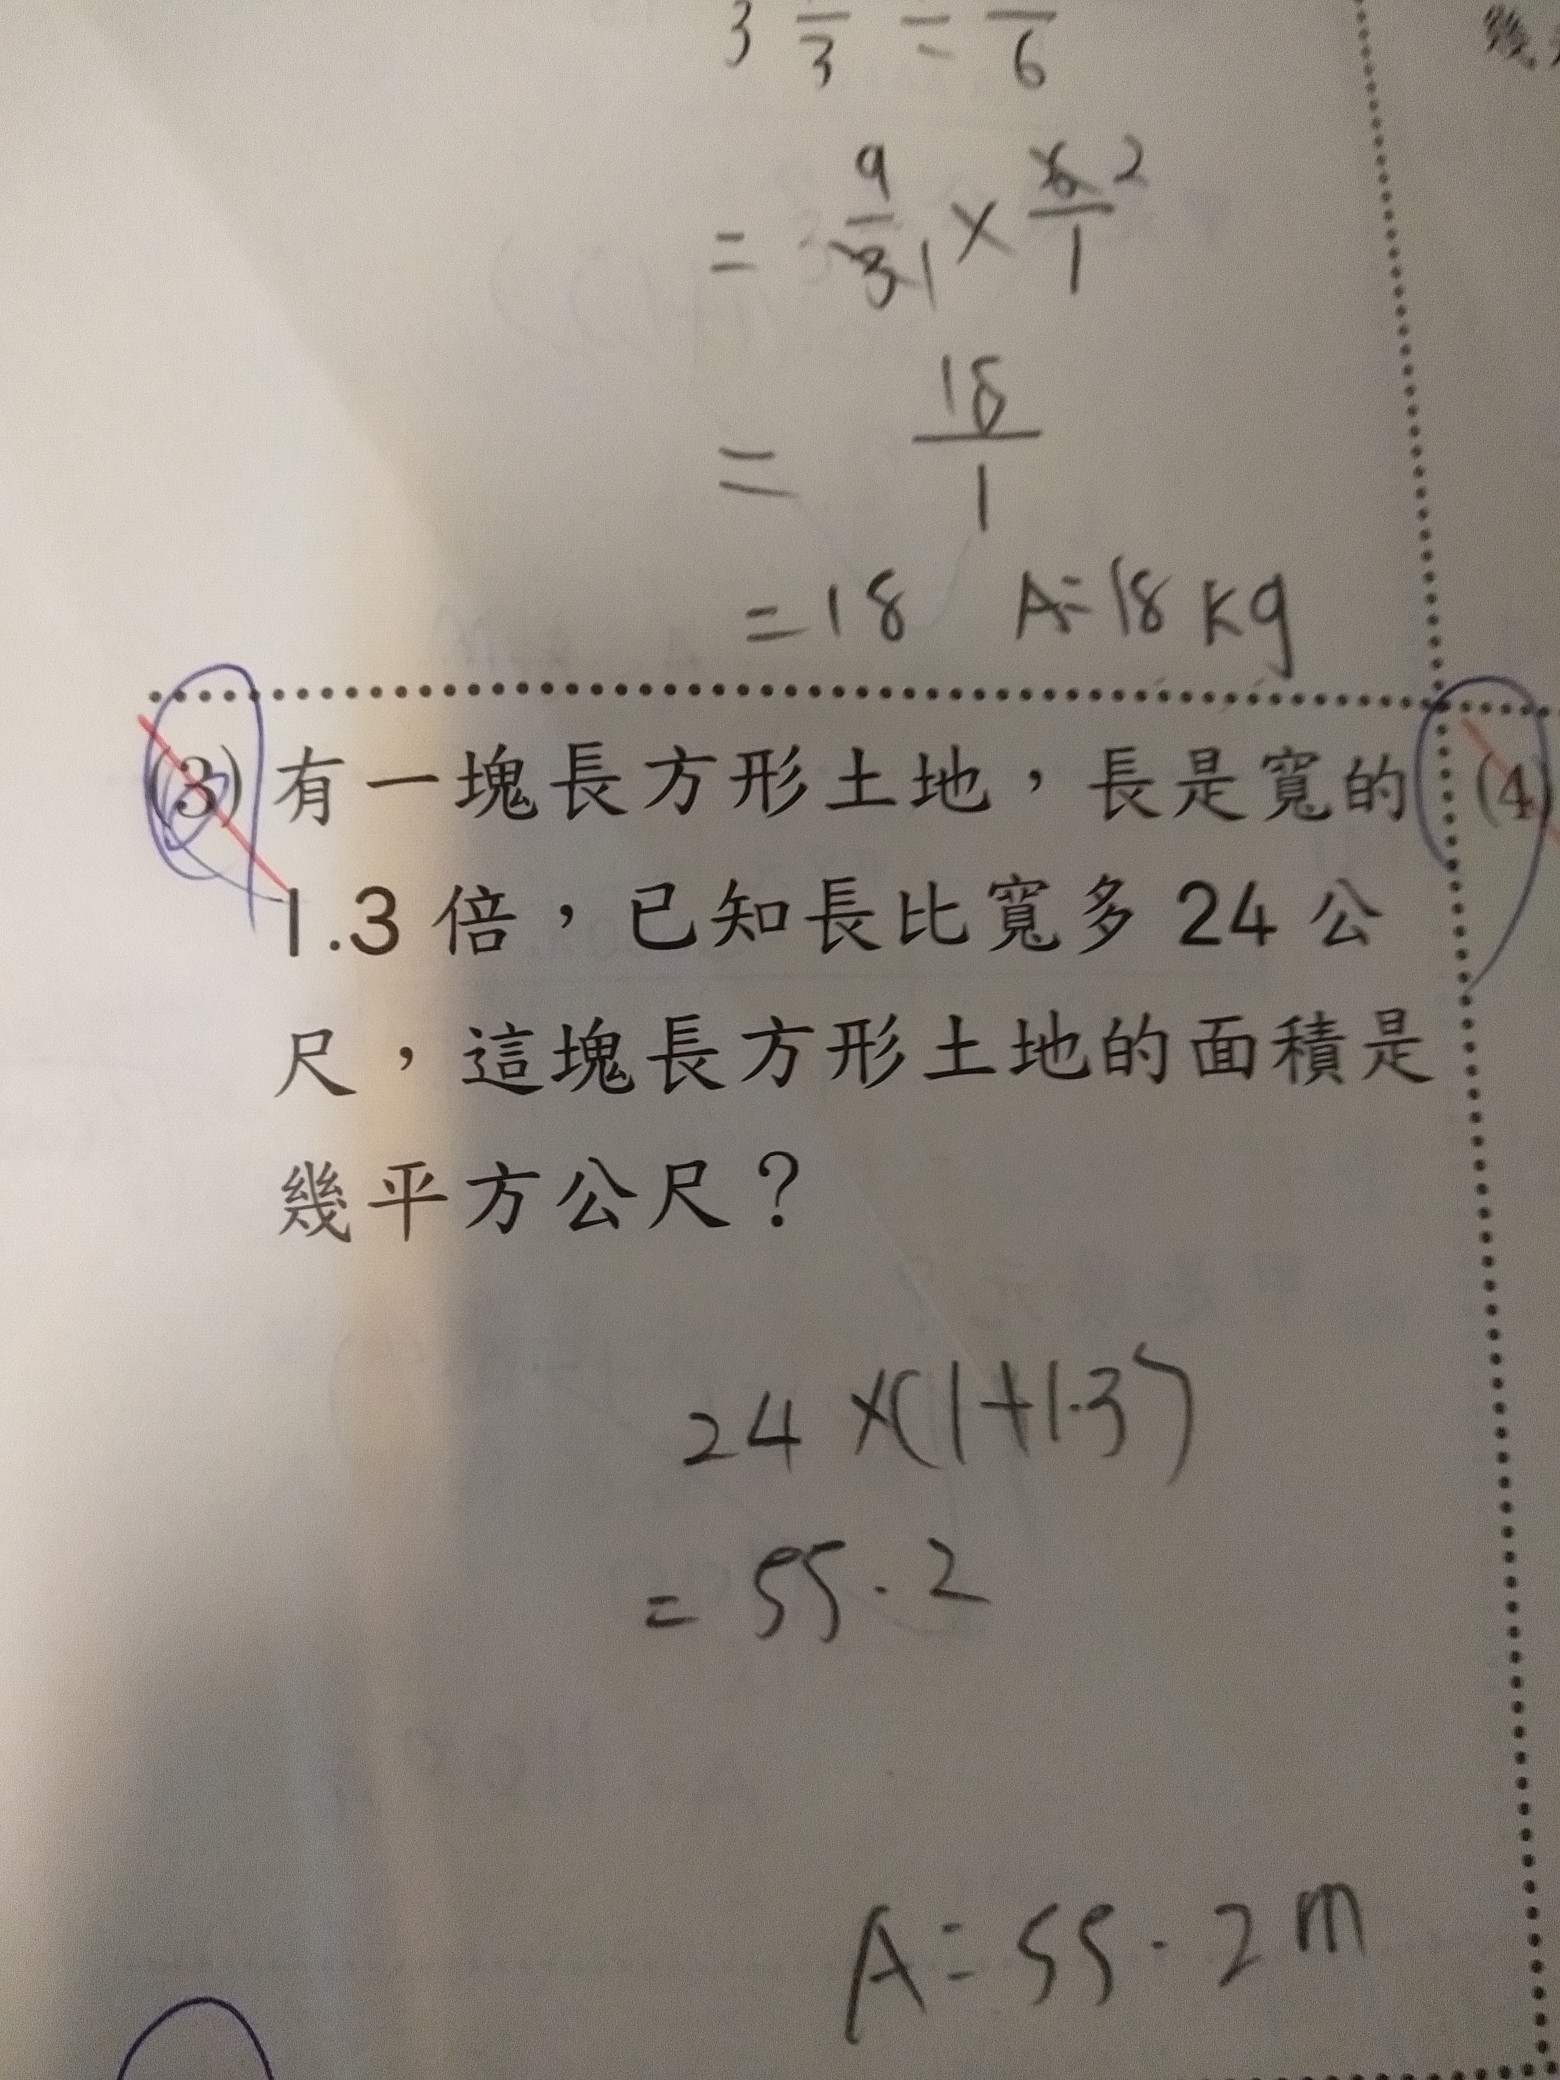 3 3 = 6
= 9/3 1 × 6/1 2
= 18/1
= 18 A=18 kg
(3) 有一塊長方形土地，長是寬的
1.3 倍，已知長比寬多 24 公
尺，這塊長方形土地的面積是
幾平方公尺？
(4)
24 ×(1+1.3)
= 55.2
A=55.2 m